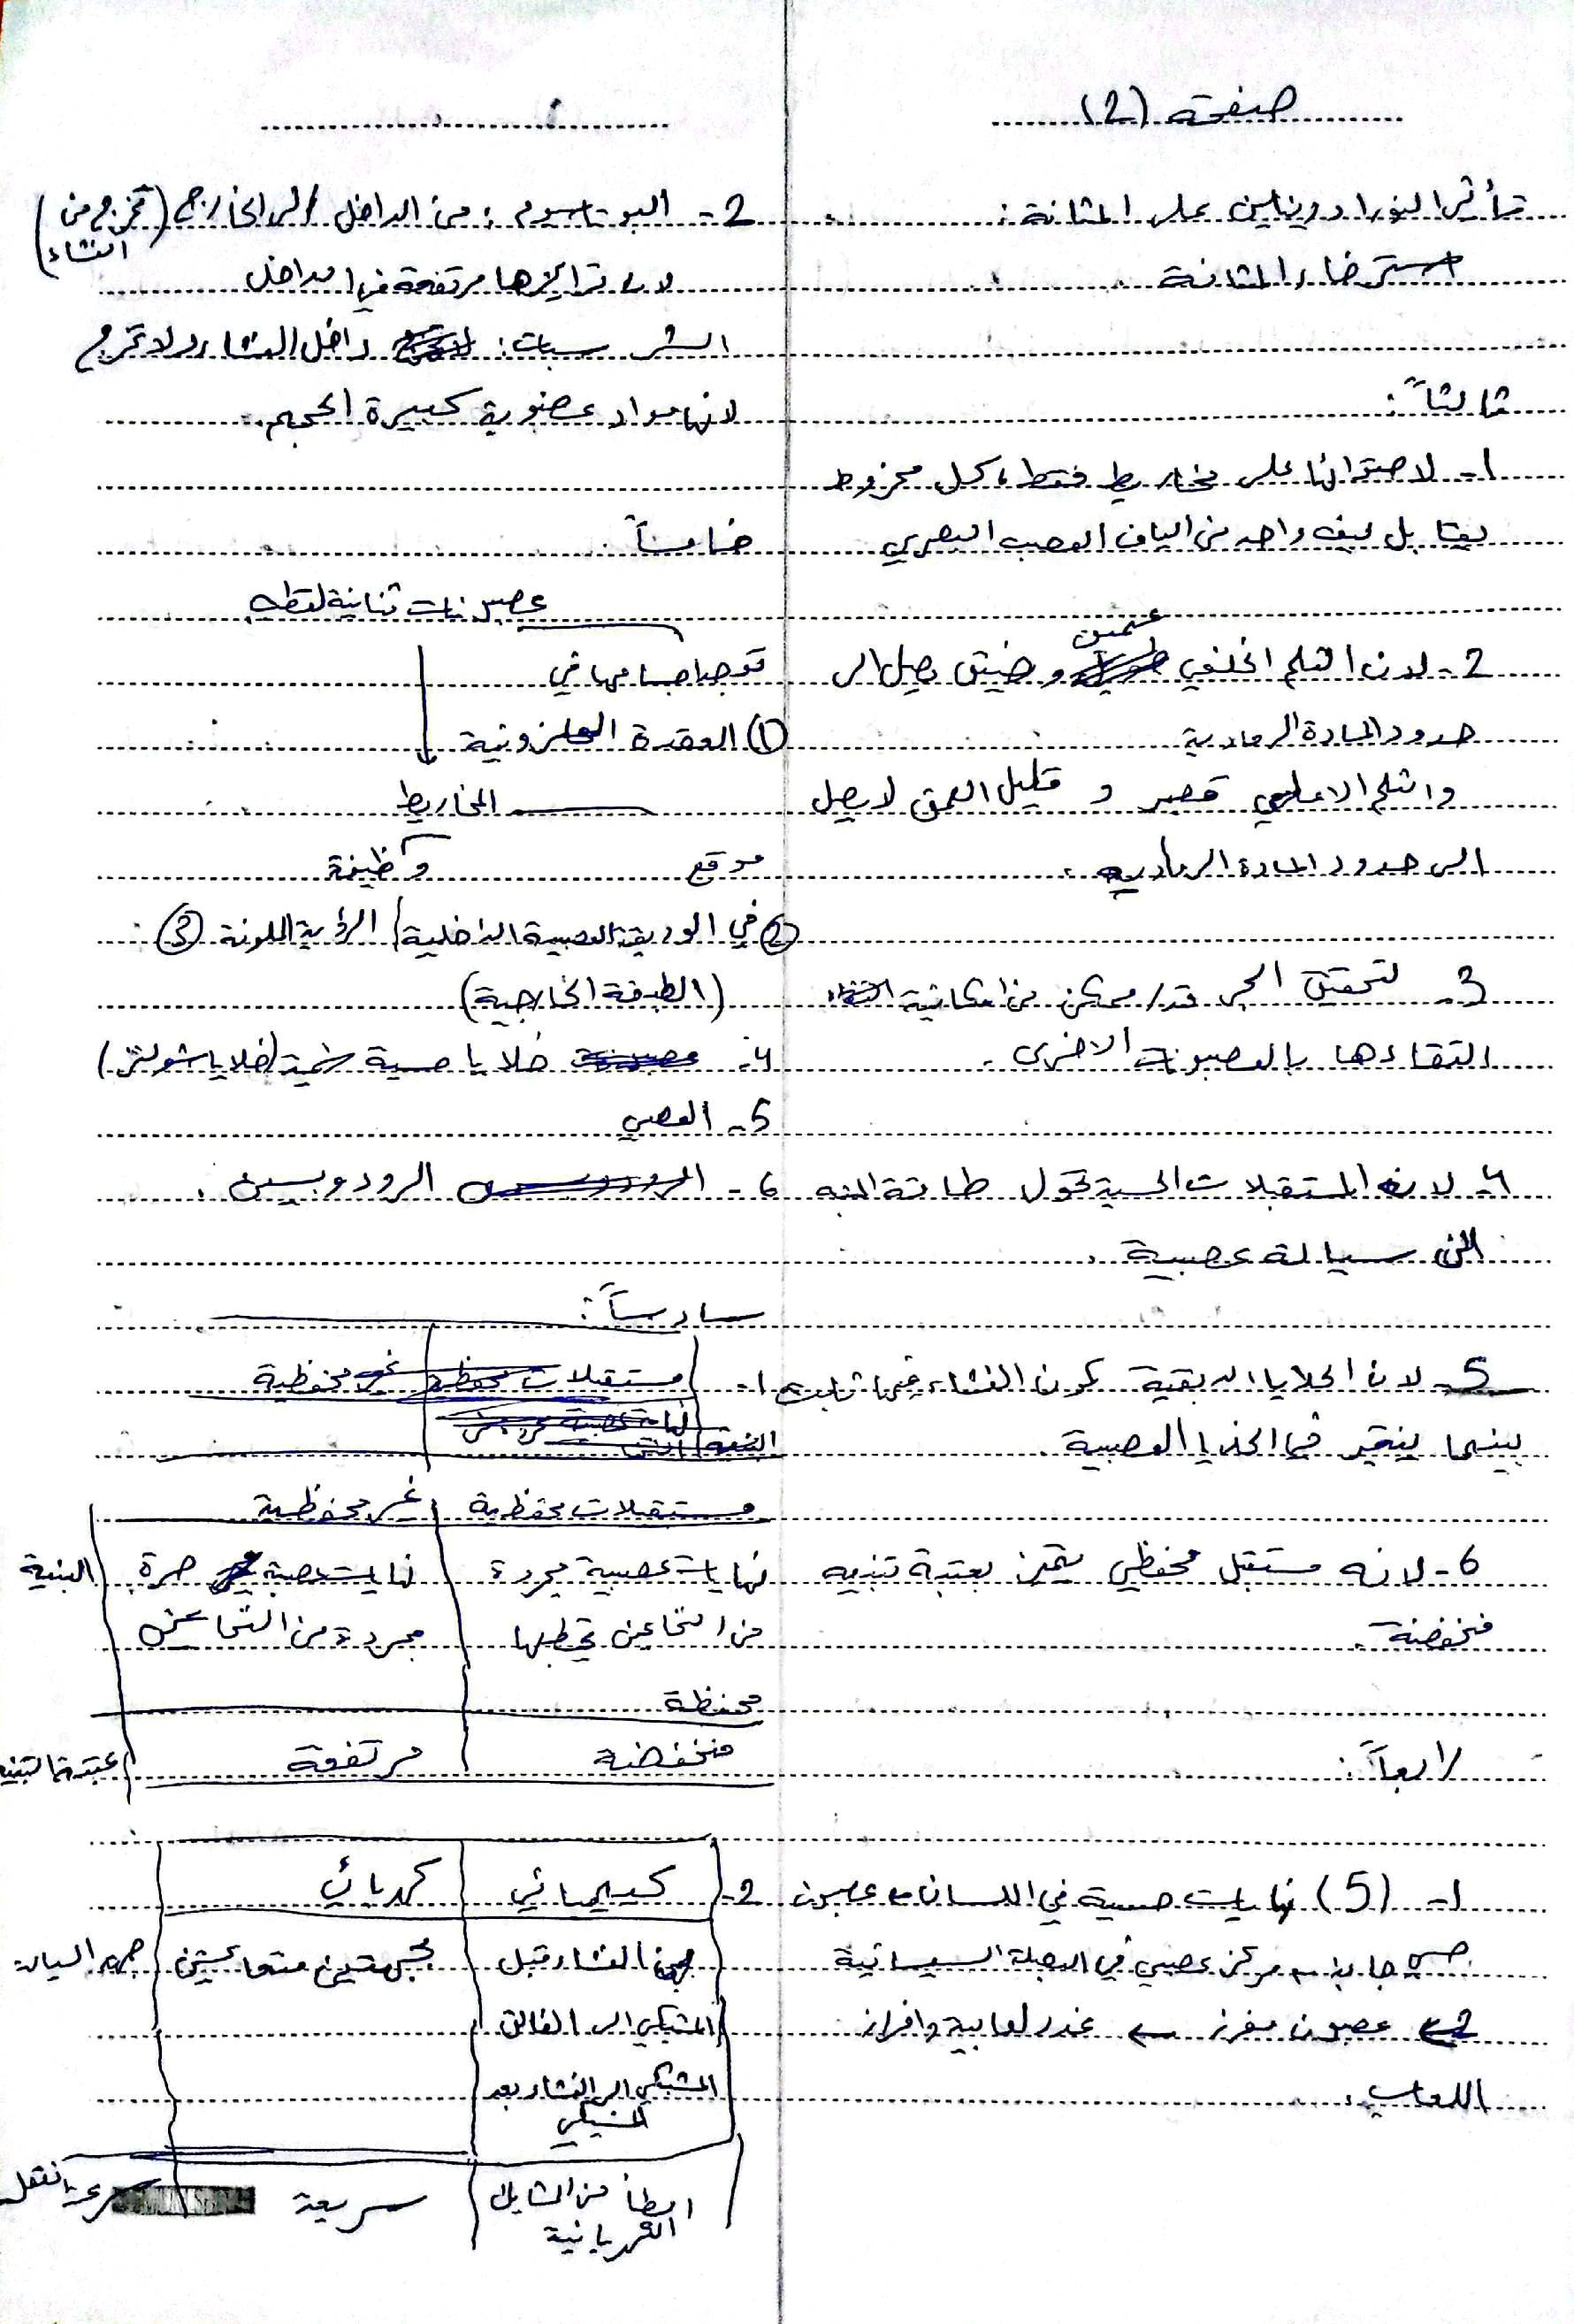 صفحة (2)
تأثير النورادرينالين على المثانة:
استرخاء المثانة.
ثالثاً:
1- لاحتوائها على مخاريط فقط، كل مخروط
يقابل ليف واحد من الياف العصب البصري
2- لان الثلم الخلفي عميق وضيق يصل الى
حدود المادة الرمادية
والثلم الامامي قصير و قليل العمق لا يصل
الى حدود المادة الرمادية.
3- لتحقيق اكبر قدر ممكن من امكانية
التقاءها بالعصبونات الاخرى.
4- لان المستقبلات الحسية تحول طاقة المنبه
الى سيالة عصبية.
5- لان الخلايا الدبقية كمون الغشاء فيها ثابت
بينما يتغير في الخلايا العصبية.
6- لانه مستقبل محفظي يتميز بعتبة تنبيه
منخفضة.
رابعاً:
1- (5) نهايات حسية في اللسان ← عصبون
حسي جابذ ← مركز عصبي في البصلة السيسائية
← عصبون مفرز ← غدد لعابية وافراز
اللعاب.
2- البوتاسيوم: من الداخل الى الخارج (تخرج من الغشاء)
لان تراكيزها مرتفعة في الداخل
الشرسبات: داخل الغشاء ولا تخرج
لانها مواد عضوية كبيرة الحجم.
خامساً
عصبونات ثنائية القطب
توجد اجسامها في
(1) العقدة الحلزونية
المخاريط
موقع وظيفة
(2) في الوريقة العصبية الداخلية / الرؤية الملونة (3)
(الطبقة الخارجية)
4- خلايا حسية شمية (خلايا شولتز)
5- العصبي
6- الرودوبسين.
سادساً:
1- مستقبلات غير محفظية
مستقبلات محفظية غير محفظية
نهايات عصبية مجردة نهايات عصبية حرة البنية
من النخاعين تحيط بها مجردة من النخاعين
محفظة
منخفضة مرتفعة عتبة التنبيه
2- كيميائي كهربائي
من الغشاء قبل بجهتين متعاكستين جهة السيالة
المشبكي الى الفالق
المشبكي الى الغشاء بعد
المشبكي
ابطأ من المشابك سريعة سرعة النقل
الكهربائية